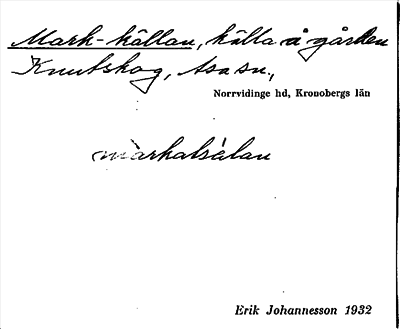 Mark-källan, källa å gården
Knutskog, Asa sn.,
Norrvidinge hd, Kronobergs län
Erik Johannesson 1932